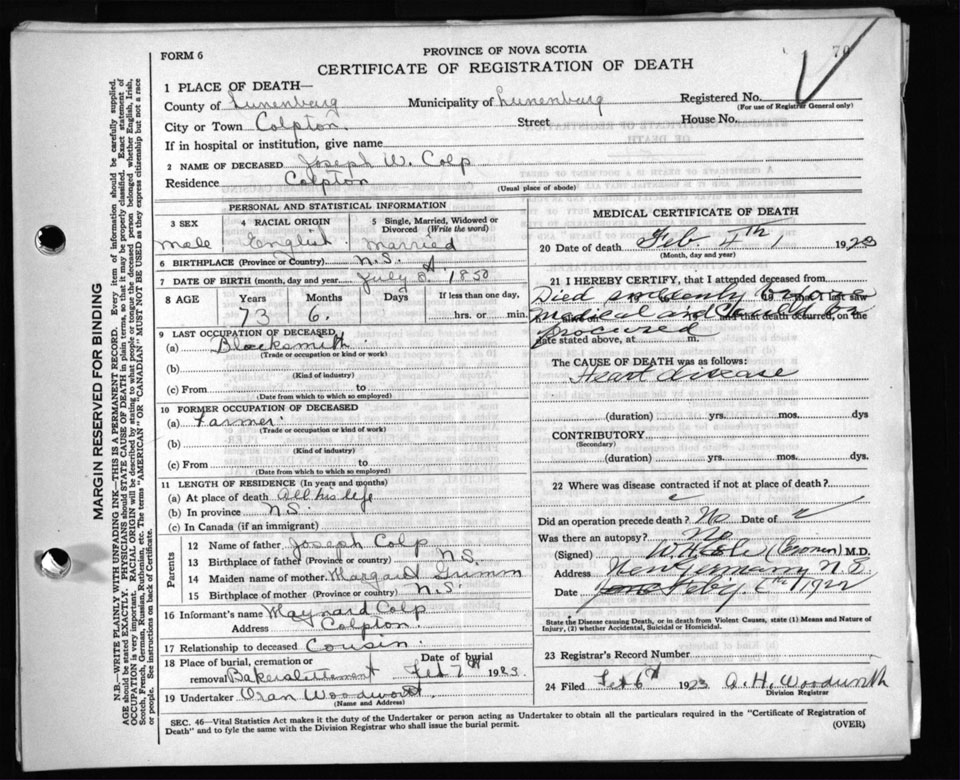 70
PROVINCE OF NOVA SCOTIA
FORM 6
CERTIFICATE OF REGISTRATION OF DEATH
1 PLACE OF DEATH—
County of Lunenburg Municipality of Lunenburg Registered No.
(For use of Registrar General only)
City or Town Colpton. Street House No.
If in hospital or institution, give name
2 NAME OF DECEASED Joseph W. Colp
Residence Colpton
(Usual place of abode)
PERSONAL AND STATISTICAL INFORMATION
3 SEX 4 RACIAL ORIGIN 5 Single, Married, Widowed or Divorced (Write the word)
male English. married
6 BIRTHPLACE (Province or Country) N.S.
7 DATE OF BIRTH (month, day and year) July 1850
8 AGE Years Months Days If less than one day,
73 6. hrs. or min.
9 LAST OCCUPATION OF DECEASED
(a) Blacksmith
(Trade or occupation or kind or work)
(b)
(Kind of industry)
(c) From to
(Date from which to which so employed)
10 FORMER OCCUPATION OF DECEASED
(a) Farmer
(Trade or occupation or kind or work)
(b)
(Kind of industry)
(c) From to
(Date from which to which so employed)
11 LENGTH OF RESIDENCE (In years and months)
(a) At place of death All his life
(b) In province N.S.
(c) In Canada (if an immigrant)
Parents
12 Name of father Joseph Colp
13 Birthplace of father (Province or country) N.S.
14 Maiden name of mother Margaret
15 Birthplace of mother (Province or country) N.S.
16 Informant's name Maynard Colp
Address Colpton.
17 Relationship to deceased Cousin
18 Place of burial, cremation or Date of burial
removal Bakersettlement Feb 7th 1923
19 Undertaker Oran Woodworth
(Name and Address)
MEDICAL CERTIFICATE OF DEATH
20 Date of death Feb. 4th 1923
(Month, day and year)
21 I HEREBY CERTIFY, that I attended deceased from
Died suddenly before
medical aid could be and that death occurred, on the
procured
date stated above, at m.
The CAUSE OF DEATH was as follows:
Heart disease
(duration) yrs. mos. dys
CONTRIBUTORY
(Secondary)
(duration) yrs. mos. dys.
22 Where was disease contracted if not at place of death?
Did an operation precede death? No Date of
Was there an autopsy? No
(Signed) (Coroner) M.D.
Address New Germany N.S.
Date
State the Disease causing Death, or in death from Violent Causes, state (1) Means and Nature of
Injury, (2) whether Accidental, Suicidal or Homicidal.
23 Registrar's Record Number
24 Filed Feb 6th 1923 A. H. Woodworth
Division Registrar
SEC. 46—Vital Statistics Act makes it the duty of the Undertaker or person acting as Undertaker to obtain all the particulars required in the "Certificate of Registration of
Death" and to fyle the same with the Division Registrar who shall issue the burial permit.
(OVER)
MARGIN RESERVED FOR BINDING
N.B.—WRITE PLAINLY WITH UNFADING INK—THIS IS A PERMANENT RECORD. Every item of information should be carefully supplied.
AGE should be stated EXACTLY. PHYSICIANS should STATE CAUSE OF DEATH in plain terms, so that it may be properly classified. Exact statement of
OCCUPATION is very important. RACIAL ORIGIN will be described by stating to what people or tongue the deceased person belonged whether English, Irish,
Scotch, French, German, Russian, Ruthenian, etc. The terms "AMERICAN" OR "CANADIAN" MUST NOT BE USED as they express citizenship but not a race
or people. See instructions on back of Certificate.